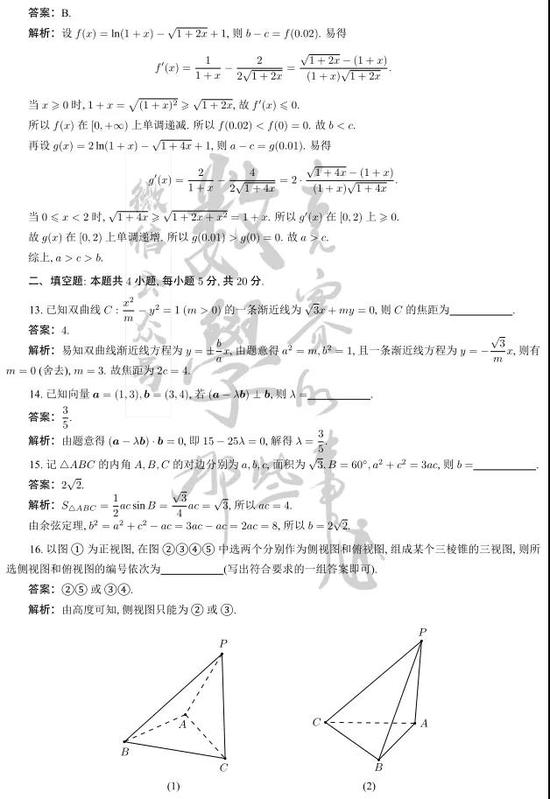 答案：B.
解析：设 f(x) = ln(1 + x) − √(1 + 2x) + 1, 则 b − c = f(0.02). 易得
f′(x) = 1/(1 + x) − 2/(2√(1 + 2x)) = (√(1 + 2x) − (1 + x))/((1 + x)√(1 + 2x)).
当 x ⩾ 0 时, 1 + x = √((1 + x)²) ⩾ √(1 + 2x), 故 f′(x) ⩽ 0.
所以 f(x) 在 [0, +∞) 上单调递减. 所以 f(0.02) < f(0) = 0. 故 b < c.
再设 g(x) = 2 ln(1 + x) − √(1 + 4x) + 1, 则 a − c = g(0.01). 易得
g′(x) = 2/(1 + x) − 4/(2√(1 + 4x)) = 2 · (√(1 + 4x) − (1 + x))/((1 + x)√(1 + 4x)).
当 0 ⩽ x < 2 时, √(1 + 4x) ⩾ √(1 + 2x + x²) = 1 + x. 所以 g′(x) 在 [0, 2) 上 ⩾ 0.
故 g(x) 在 [0, 2) 上单调递增. 所以 g(0.01) > g(0) = 0. 故 a > c.
综上, a > c > b.
二、填空题: 本题共 4 小题, 每小题 5 分, 共 20 分.
13. 已知双曲线 C : x²/m − y² = 1 (m > 0) 的一条渐近线为 √3x + my = 0, 则 C 的焦距为________.
答案：4.
解析：易知双曲线渐近线方程为 y = ±b/a x, 由题意得 a² = m, b² = 1, 且一条渐近线方程为 y = −√3/m x, 则有
m = 0 (舍去), m = 3. 故焦距为 2c = 4.
14. 已知向量 a = (1, 3), b = (3, 4), 若 (a − λb) ⊥ b, 则 λ = ________.
答案：3/5.
解析：由题意得 (a − λb) · b = 0, 即 15 − 25λ = 0, 解得 λ = 3/5.
15. 记 △ABC 的内角 A, B, C 的对边分别为 a, b, c, 面积为 √3, B = 60°, a² + c² = 3ac, 则 b = ________.
答案：2√2.
解析：S△ABC = 1/2 ac sin B = √3/4 ac = √3, 所以 ac = 4.
由余弦定理, b² = a² + c² − ac = 3ac − ac = 2ac = 8, 所以 b = 2√2.
16. 以图 ① 为正视图, 在图 ②③④⑤ 中选两个分别作为侧视图和俯视图, 组成某个三棱锥的三视图, 则所
选侧视图和俯视图的编号依次为________(写出符合要求的一组答案即可).
答案：②⑤ 或 ③④.
解析：由高度可知, 侧视图只能为 ② 或 ③.
P
A
B
C
(1)
P
C
A
B
(2)